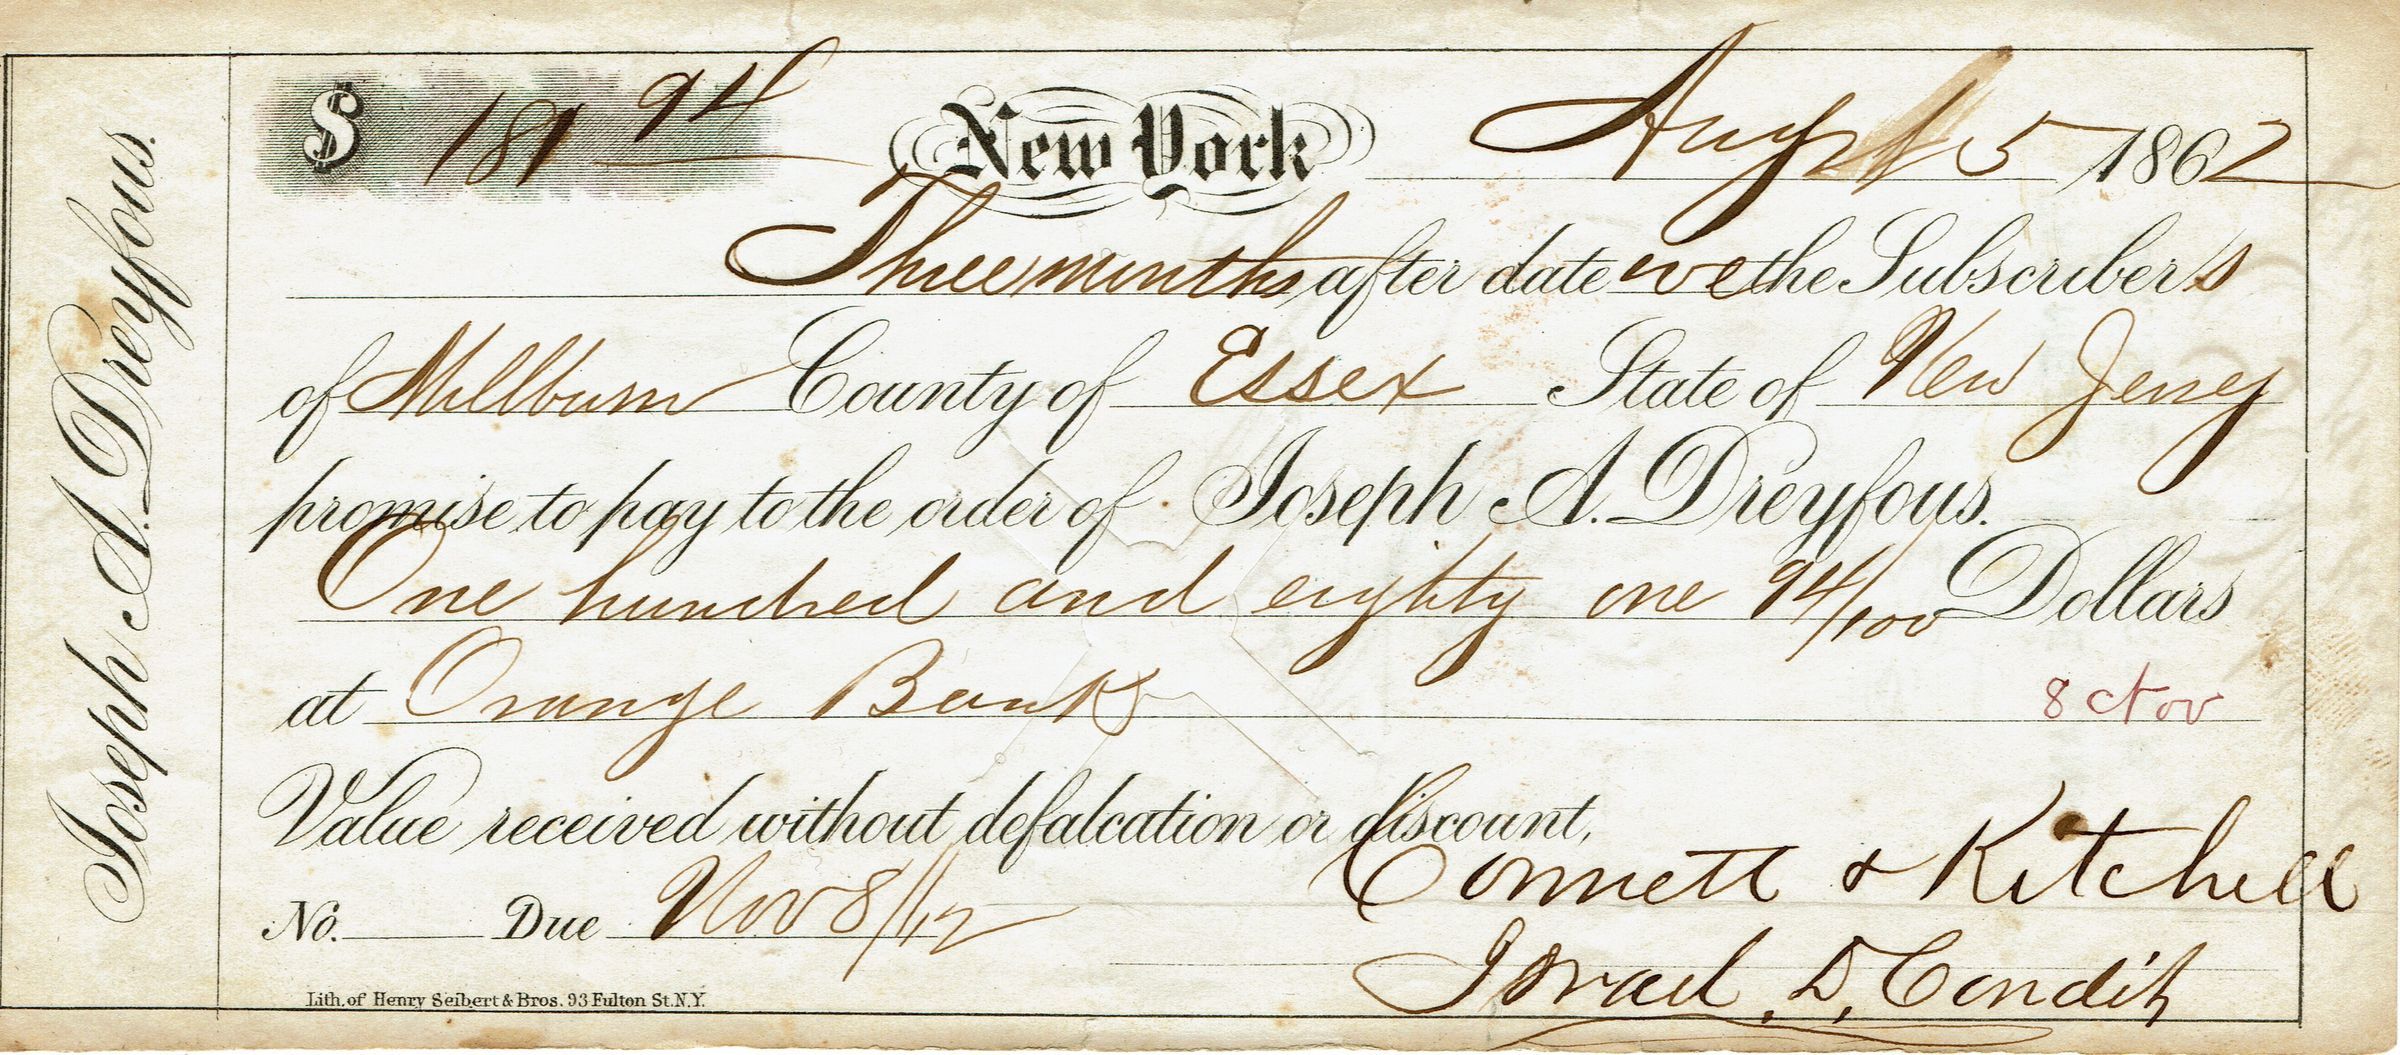 Joseph A. Dreyfous.
$ 181 94 New York August 5 1862
Three months after date we the Subscribers
of Millburn County of Essex State of New Jersey
promise to pay to the order of Joseph A. Dreyfous.
One hundred and eighty one 94/100 Dollars
at Orange Bank
8 Nov
Value received without defalcation or discount,
Connett & Kitchell
No. Due Nov 8/
Israel D. Condit
Lith. of Henry Seibert & Bros. 93 Fulton St. N.Y.